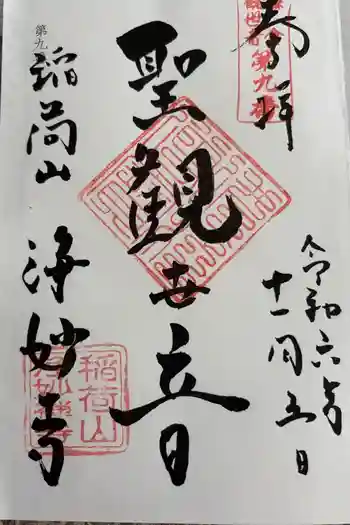 奉拝
第九番
令和六年
十一月五日
聖観世音
第九
稲荷山
浄妙寺
稲荷山
浄妙禅寺